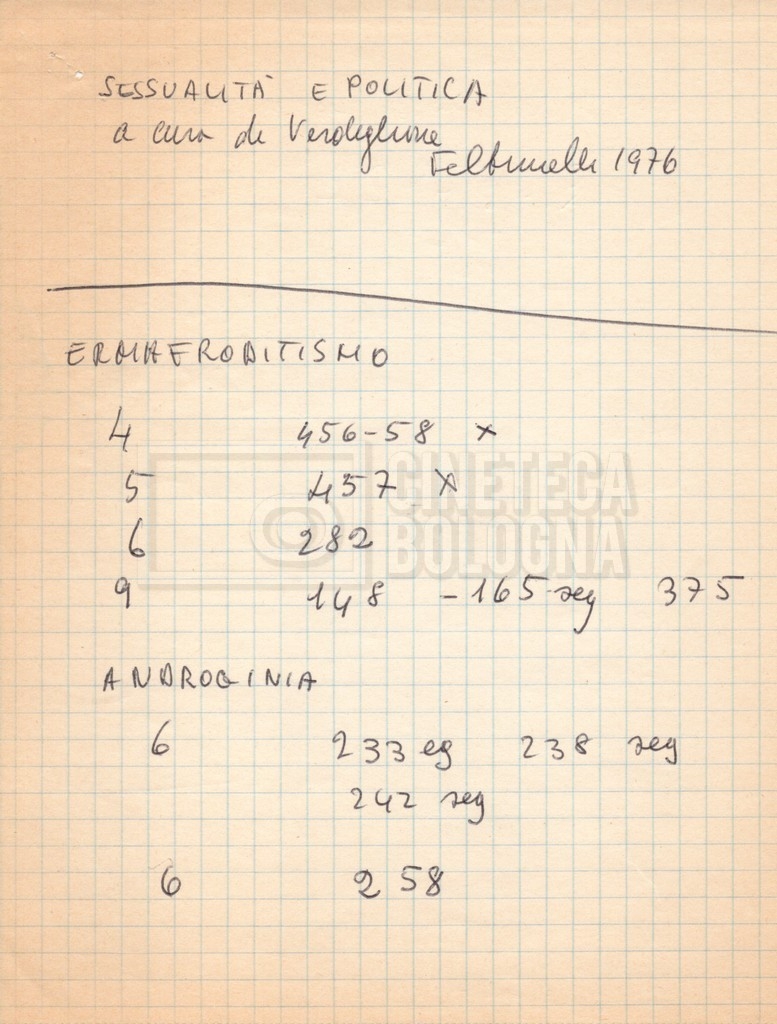 SESSUALITÀ E POLITICA
a cura di Verdiglione
Feltrinelli 1976
ERMAFRODITISMO
4 456-58 x
5 457 x
6 282
9 148 - 165 seg 375
ANDROGINIA
6 233 eg 238 seg
242 seg
6 258
CINETECA
BOLOGNA